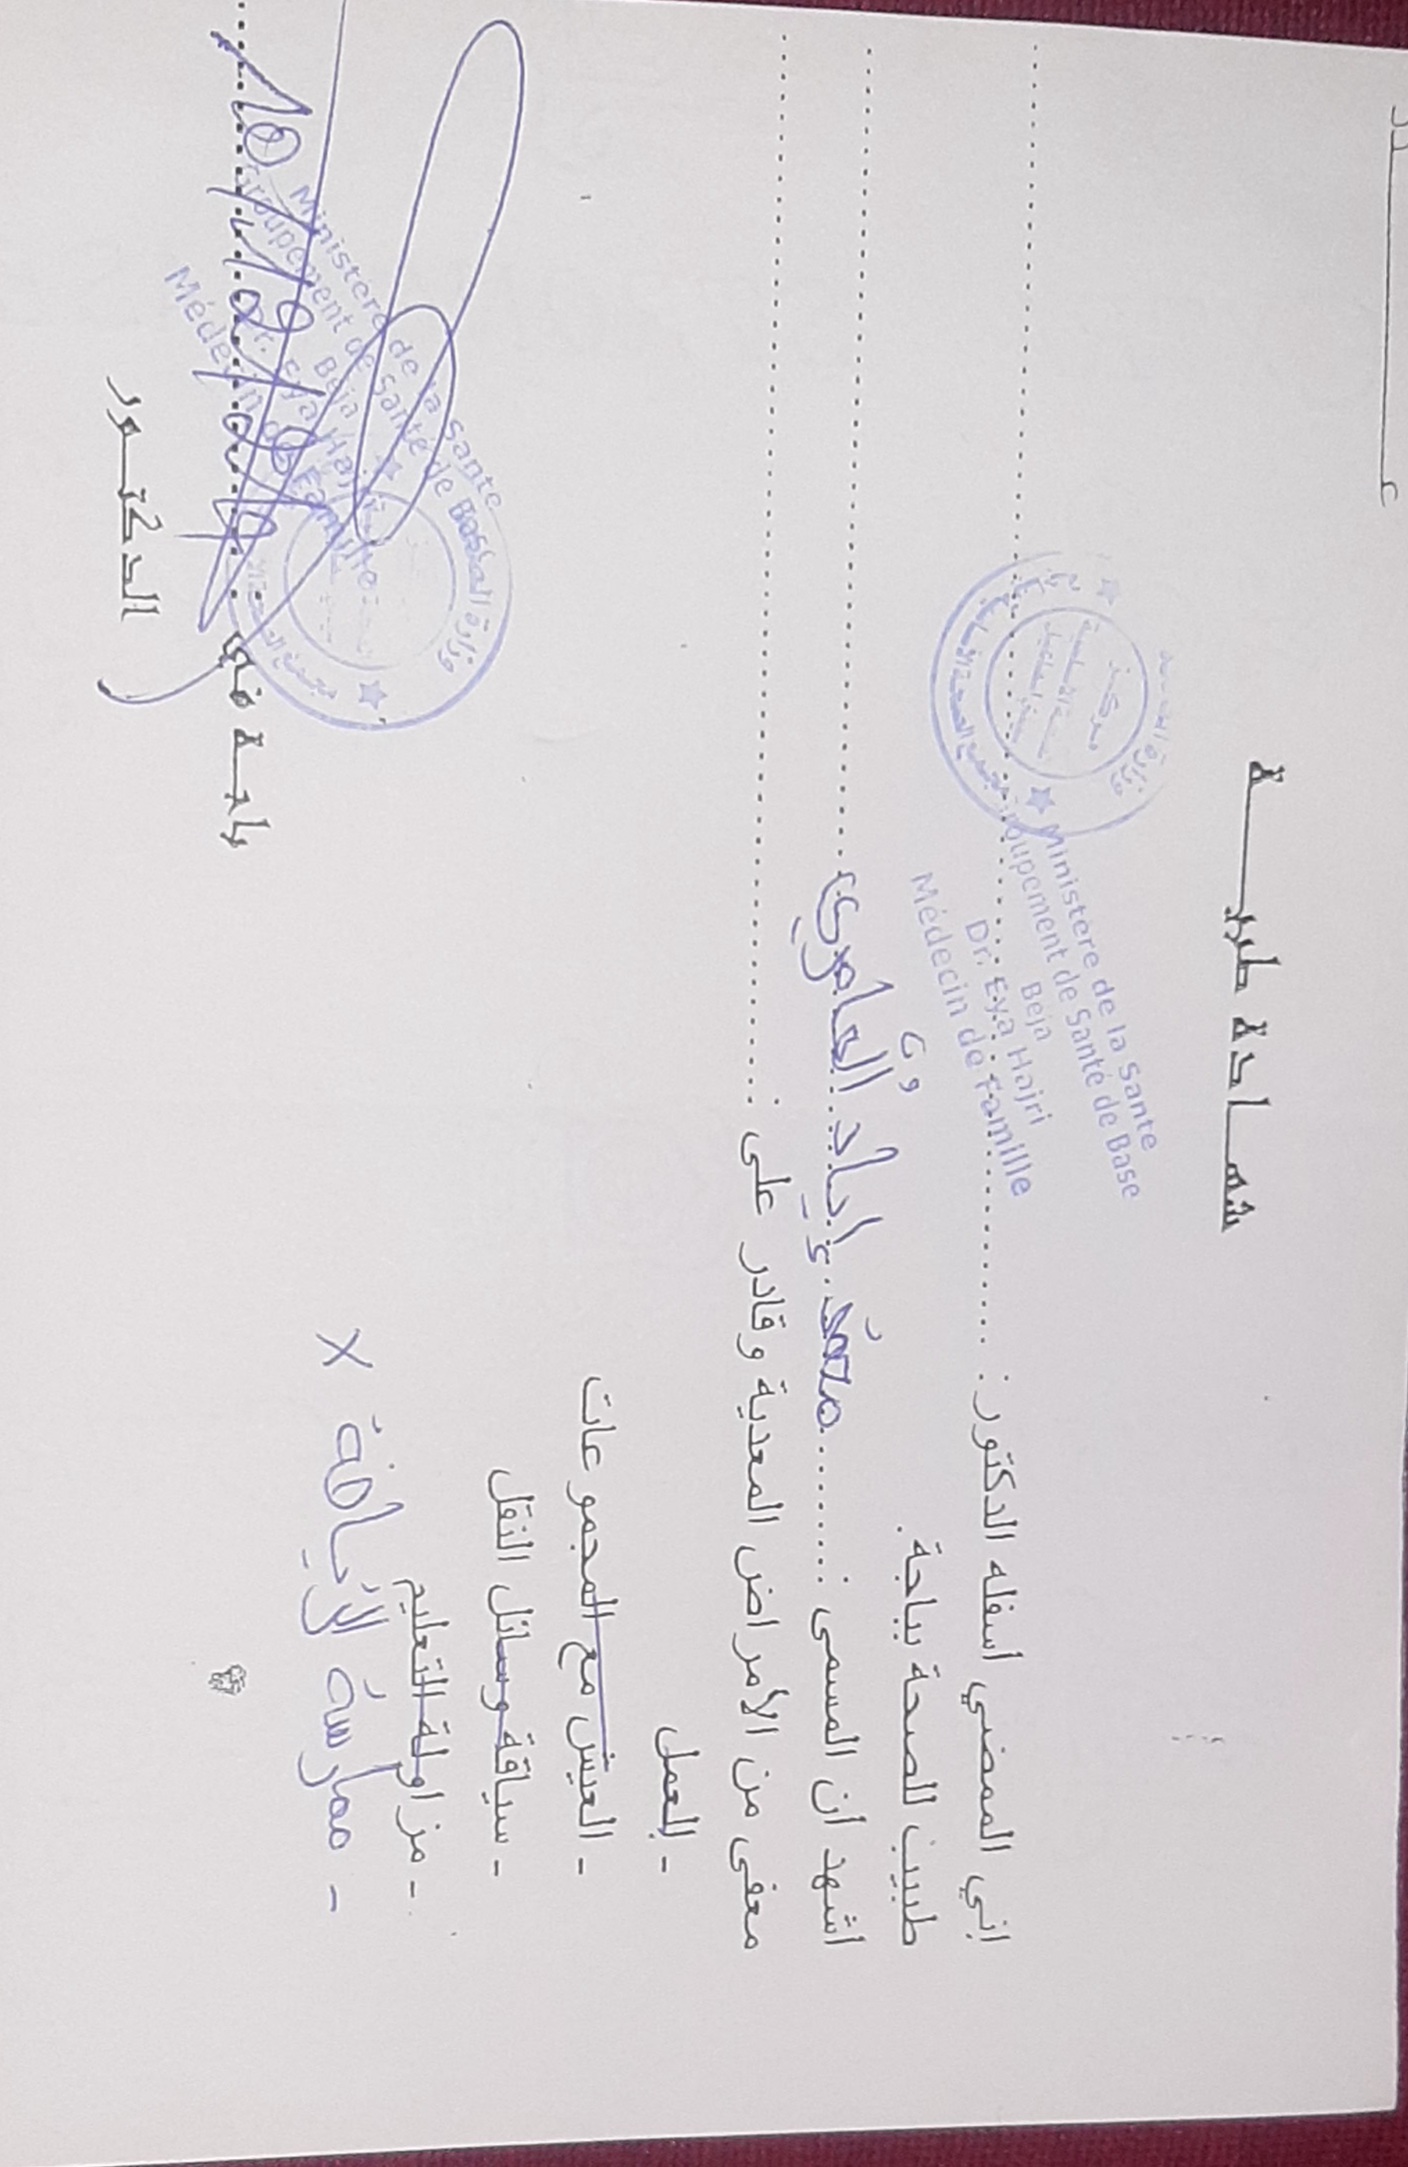 شهادة طبية
إني الممضي أسفله الدكتور :
Ministère de la Sante
Groupement de Santé de Base
Beja
Dr. Eya Hajri
Médecin de Famille
وزارة الصحة
مجمع الصحة الأساسية
مركز
طبيب للصحة بباجة.
اشهد ان المسمى : محمد إياد العامري
معفى من الأمراض المعدية وقادر على :
- العمل
- العيش مع المجموعات
- سياقة وسائل النقل
- مزاولة التعليم
- ممارسة الرياضة X
باجة في
الدكتور
Ministère de la Sante
Groupement de Santé de Base
Beja
Dr. Eya Hajri
Médecin de Famille
وزارة الصحة